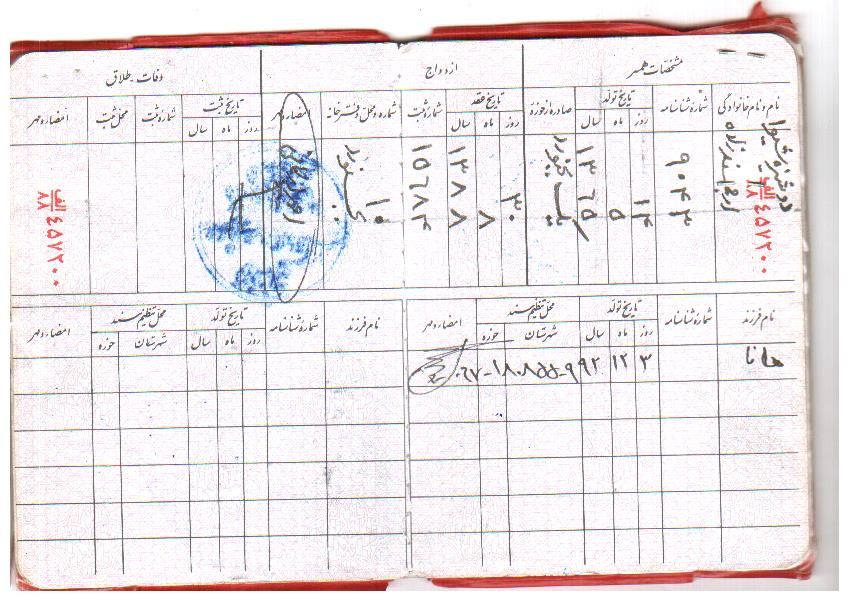 مشخصات همسر
ازدواج
وفات یا طلاق
نام و نام خانوادگی
شماره شناسنامه
تاریخ تولد
روز
ماه
سال
صادره از حوزه
تاریخ عقد
روز
ماه
سال
شماره ثبت
شماره و محل دفترخانه
امضاء و مهر
تاریخ ثبت
روز
ماه
سال
شماره ثبت
محل ثبت
امضاء و مهر
دوشیزه شیوا
۹۰۴۳
۱۴
۵
۱۳۶۵
۳۰
۸
۱۳۸۸
۱۵۶۸۴
۱۰
الف ۸۸ ۴۵۷۲۰۰
الف ۸۸ ۴۵۷۲۰۰
نام فرزند
شماره شناسنامه
تاریخ تولد
روز
ماه
سال
محل تنظیم سند
شهرستان
حوزه
امضاء و مهر
نام فرزند
شماره شناسنامه
تاریخ تولد
روز
ماه
سال
محل تنظیم سند
شهرستان
حوزه
امضاء و مهر
هانا
۳
۱۲
۹۲